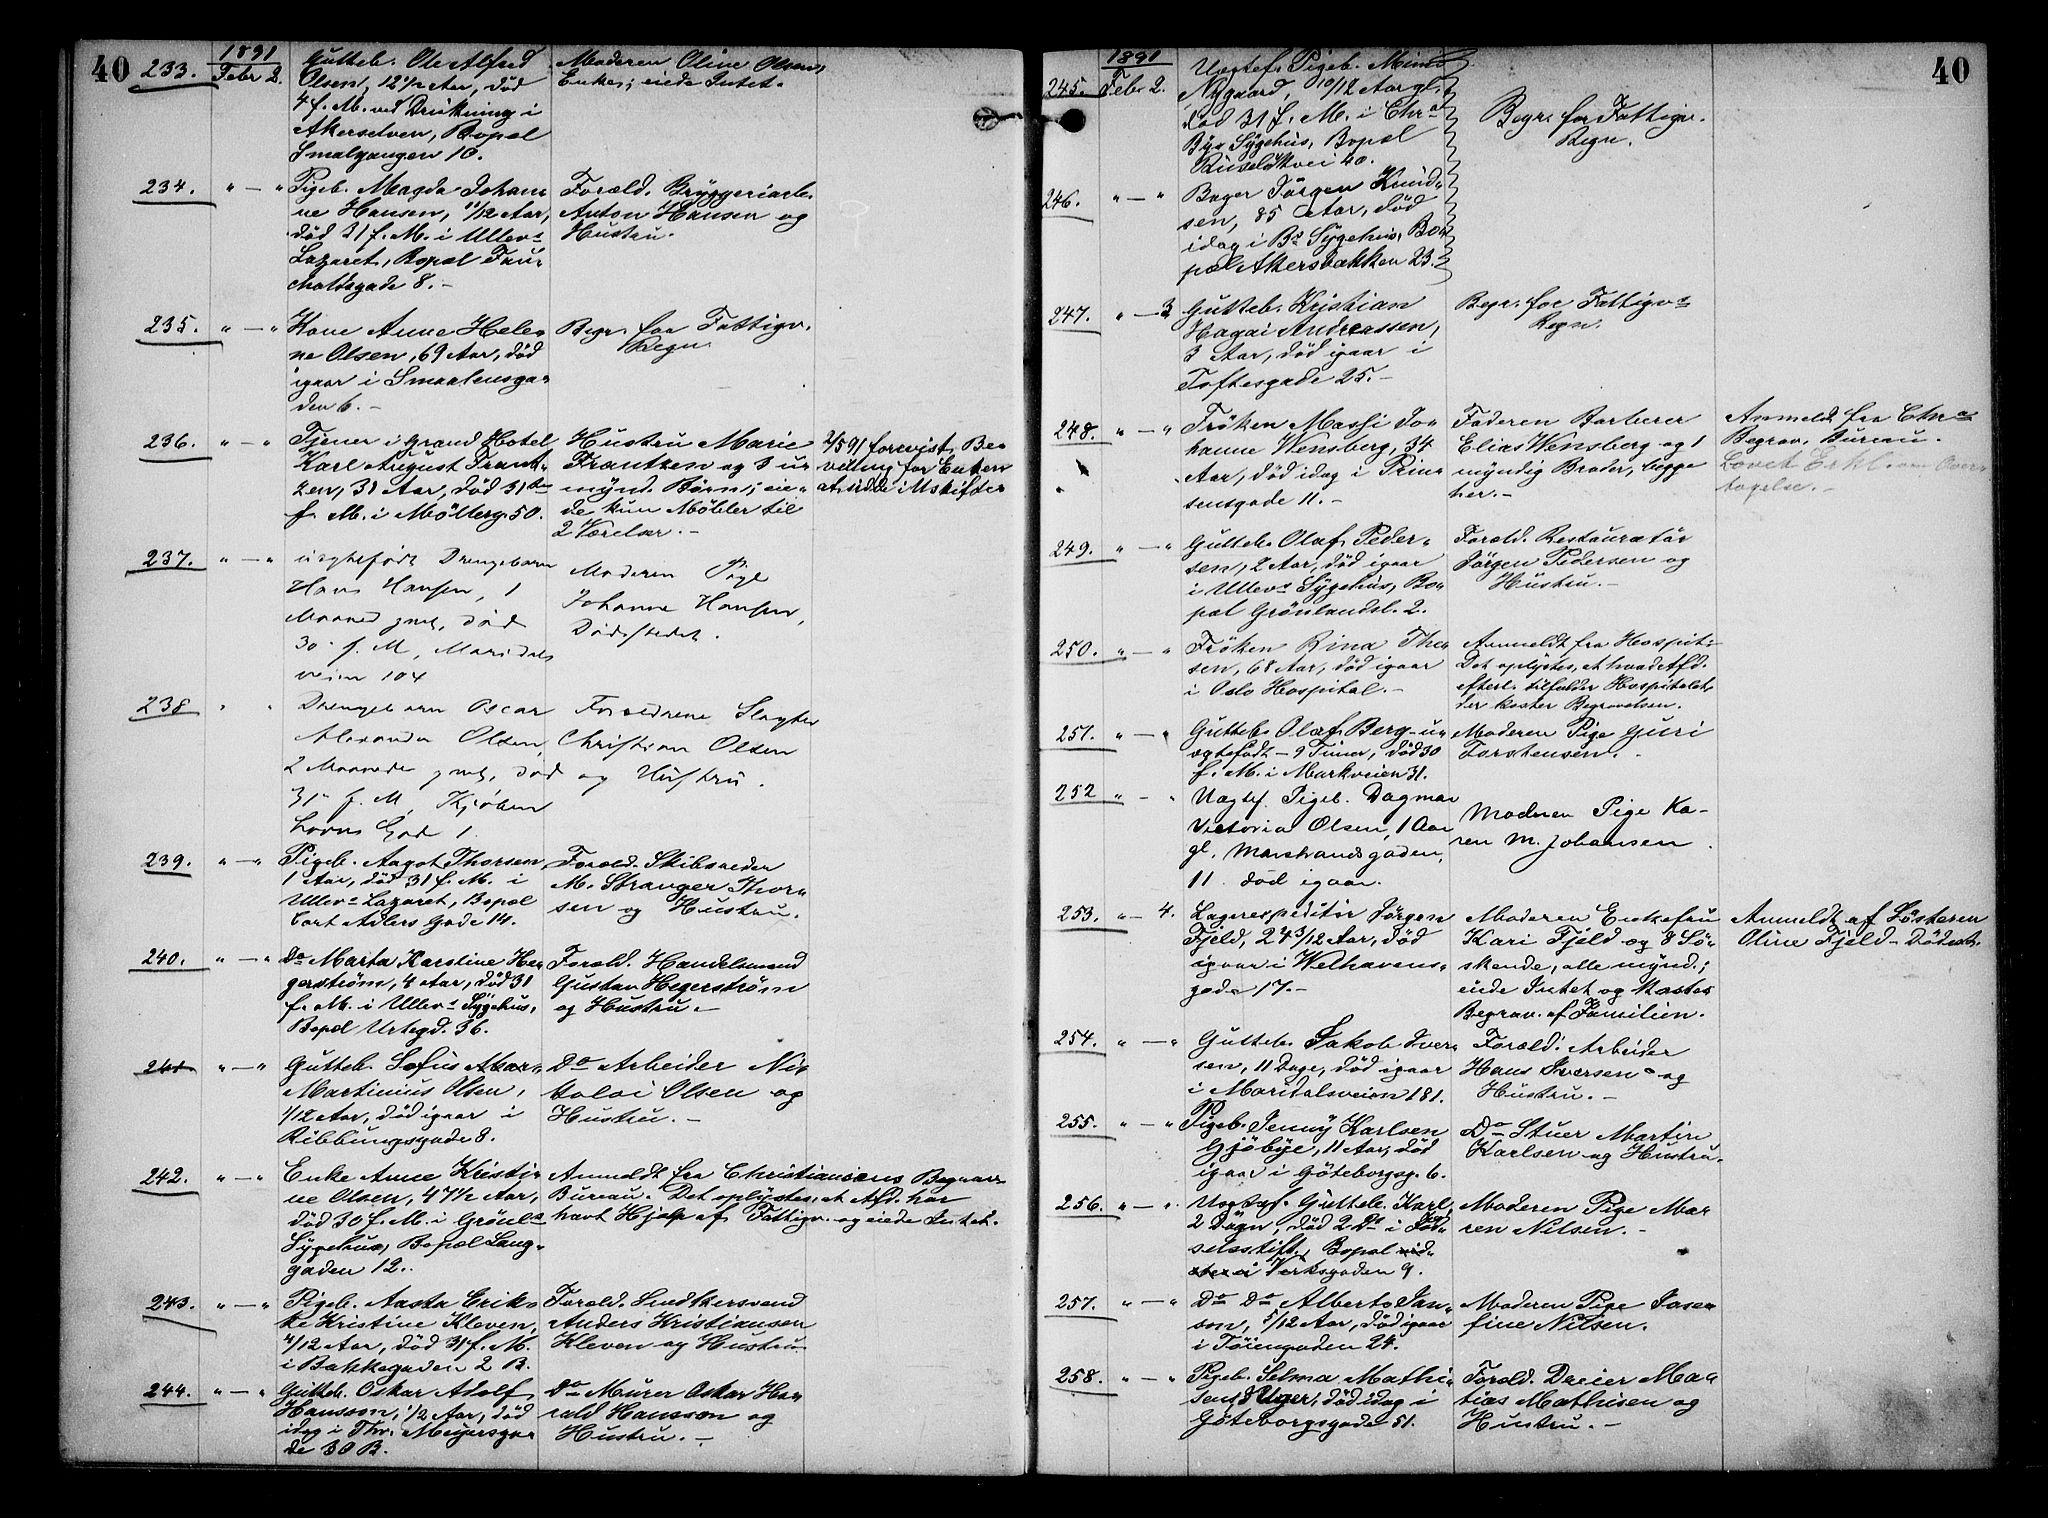 40
1891
233. Febr 2. Gutteb. Ole Alfred
Olsen, 12 1/2 Aar, død
4 f. M. ved Drukning i
Akerselven, Bopæl
Smalgangen 10.
Moderen Oline Olsen,
Enke; eiede Intet.
234. " — " Pigeb. Magda Johan-
ne Hansen, 11/12 Aar,
død 31 f. M. i Ullev.
Lazaret, Bopæl Fau-
chaldsgade 8. –
Foræld. Bryggeriarb.
Anton Hansen og
Hustru.
235. " — " Kone Anne Hele-
ne Olsen, 69 Aar, død
igaar i Smaalensga-
den 6. –
Begr. for Fattigv.
Regn.
236. " — " Tjener i Grand Hotel
Karl August Frant-
zen, 31 Aar, død 31te
f. M. i Møllerg. 50.
Hustru Marie
Frantzen og 3 u-
mynd. Børn; eie-
de kun Møbler til
2 Værelser. –
2/5 91 forevist Be-
villing for Enken
at sidde i Uskifte
237. " — " uægtefødt Drengebarn
Hans Hansen, 1
Maaned gml., død
30 f. M, Maridals
veien 104
Moderen Pige
Johanne Hansen,
Dødsstedet.
238 " " Drengebarn Oscar
Alexander Olsen,
2 Maaneder gml, død
31 f. M, Kjøben
havns Gad 1.
Forældrene Slagter
Christian Olsen
og Hustru.
239. " — " Pigeb. Aagot Thorsen,
1 Aar, død 31 f. M. i
Ullev. Lazaret, Bopæl
Cort Adlers Gade 14.
Foræld. Skibsreder
M. Stranger Thor-
sen og Hustru.
240. " — " Do Marta Karoline He-
gerstrøm, 4 Aar, død 31
f. M. i Ullev. Sygehus,
Bopæl Urtegd. 36.
Foræld. Handelsmand
Gustav Hegerstrøm
og Hustru. –
241 " — " Gutteb. Sofus
Martinius Olsen,
1/12 Aar, død igaar i
Ribbungsgade 8.
Do Arbeider Ni-
kolai Olsen og
Hustru. –
242. " — " Enke Anne Kristi-
ne Olsen, 47 1/2 Aar,
død 30 f. M. i Grønl.
Sygehus, Bopæl Lang-
gaden 12.
Anmeldt fra Christiansens Begrav.
Bureau. Det oplystes, at Afd. har
havt Hjælp af Fattigv. og eiede Intet.
243. " — " Pigeb. Aasta Erik-
ke Kristine Kleven,
4/12 Aar, død 31 f. M.
i Bakkegaden 2 B.
Foræld. Snedkersvend
Anders Kristiansen
Kleven og Hustru.
244. " — " Gutteb. Oskar Adolf
Hansson, 1/2 Aar, død
idag i Thv. Meyersga-
de 38 B.
Do Murer Oskar Ha-
rald Hansson og
Hustru. –
40
1891
245. Febr 2. Uægtef. Pigeb.
Nygaard, 10/12 Aar gl.
død 31 f. M. i Chra
Bys Sygehus, Bopæl
Ruseløkvei 40.
Begr. for Fattigv.
Regn.
246. " — " Bager Jørgen Knud-
sen, 85 Aar, død
idag i Bs Sygehus, Bo-
pæl Akersbakken 23.
247. " — 3. Gutteb. Kristian
Hagai Andreassen,
3 Aar, død igaar i
Toftesgade 25. –
Begr. for Fattigvs
Regn.
248. " — " Frøken Massi Jo-
hanne Wensberg, 34
Aar, død idag i Prin-
sensgade 11. –
Faderen Barberer
Elias Wensberg og 1
myndig Broder, begge
her. –
Anmeldt fra Chra
Begrav. Bureau.
Lovet Erkl. om Over-
tagelse. –
249. " — " Gutteb. Olaf Peder-
sen, 2 Aar, død igaar
i Ullevs Sygehus, Bo-
pæl Grønlandsl. 2.
Foræld. Restauratør
Jørgen Pedersen og
Hustru. –
250. " — " Frøken Rina The-
sen, 68 Aar, død igaar
i Oslo Hospital. –
Anmeldt fra Hospit.
Det oplystes, at hvad Afd.
efterl. tilfalder Hospitalet,
der koster Begravelsen.
251. " — " Gutteb. Olaf Berg – u-
ægtefødt – 9 Timer, død 30
f. M. i Markveien 31.
Moderen Pige Guri
Torstensen. –
252 " — " Uægtef. Pigeb. Dagmar
Victoria Olsen, 1 Aar
gl. Marstrandsgaden,
11. død igaar.
Modren Pige Ka-
ren M. Johansen.
253. " — 4. Lagerexpeditør Jørgen
Fjeld, 24 3/12 Aar, død
igaar i Welhavens-
gade 17. –
Moderen Enkefru
Kari Fjeld og 8 Sø-
skende, alle mynd.;
eiede Intet og kostes
Begrav. af Familien.
Anmeldt af Søsteren
Oline Fjeld – Dødsst.
254. " — " Gutteb. Jakob Iver-
sen, 11 Dage, død igaar
i Maridalsveien 181.
Foræld. Arbeider
Hans Iversen og
Hustru. –
255. " — " Pigeb. Jenny Karlsen
Gjøbye, 11 Aar, død
igaar i Göteborgsg. 6.
Do Stuer Martin
Karlsen og Hustru.
256. " — " Uægtef. Gutteb. Karl,
2 Døgn, død 2 Ds i Fød-
selsstift., Bopæl
Verksgaden 9.
Moderen Pige Ma-
ren Nilsen. –
257. " — " Do Do Alberto Jan-
son, 5/12 Aar, død igaar
i Tøiengaden 24.
Moderen Pige Jose-
fine Nilsen.
258. " — " Pigeb. Selma Mathi-
sen, Uger, død idag i
Göteborgsgade 51.
Foræld. Dreier Ma-
tias Mathisen og
Hustru. –